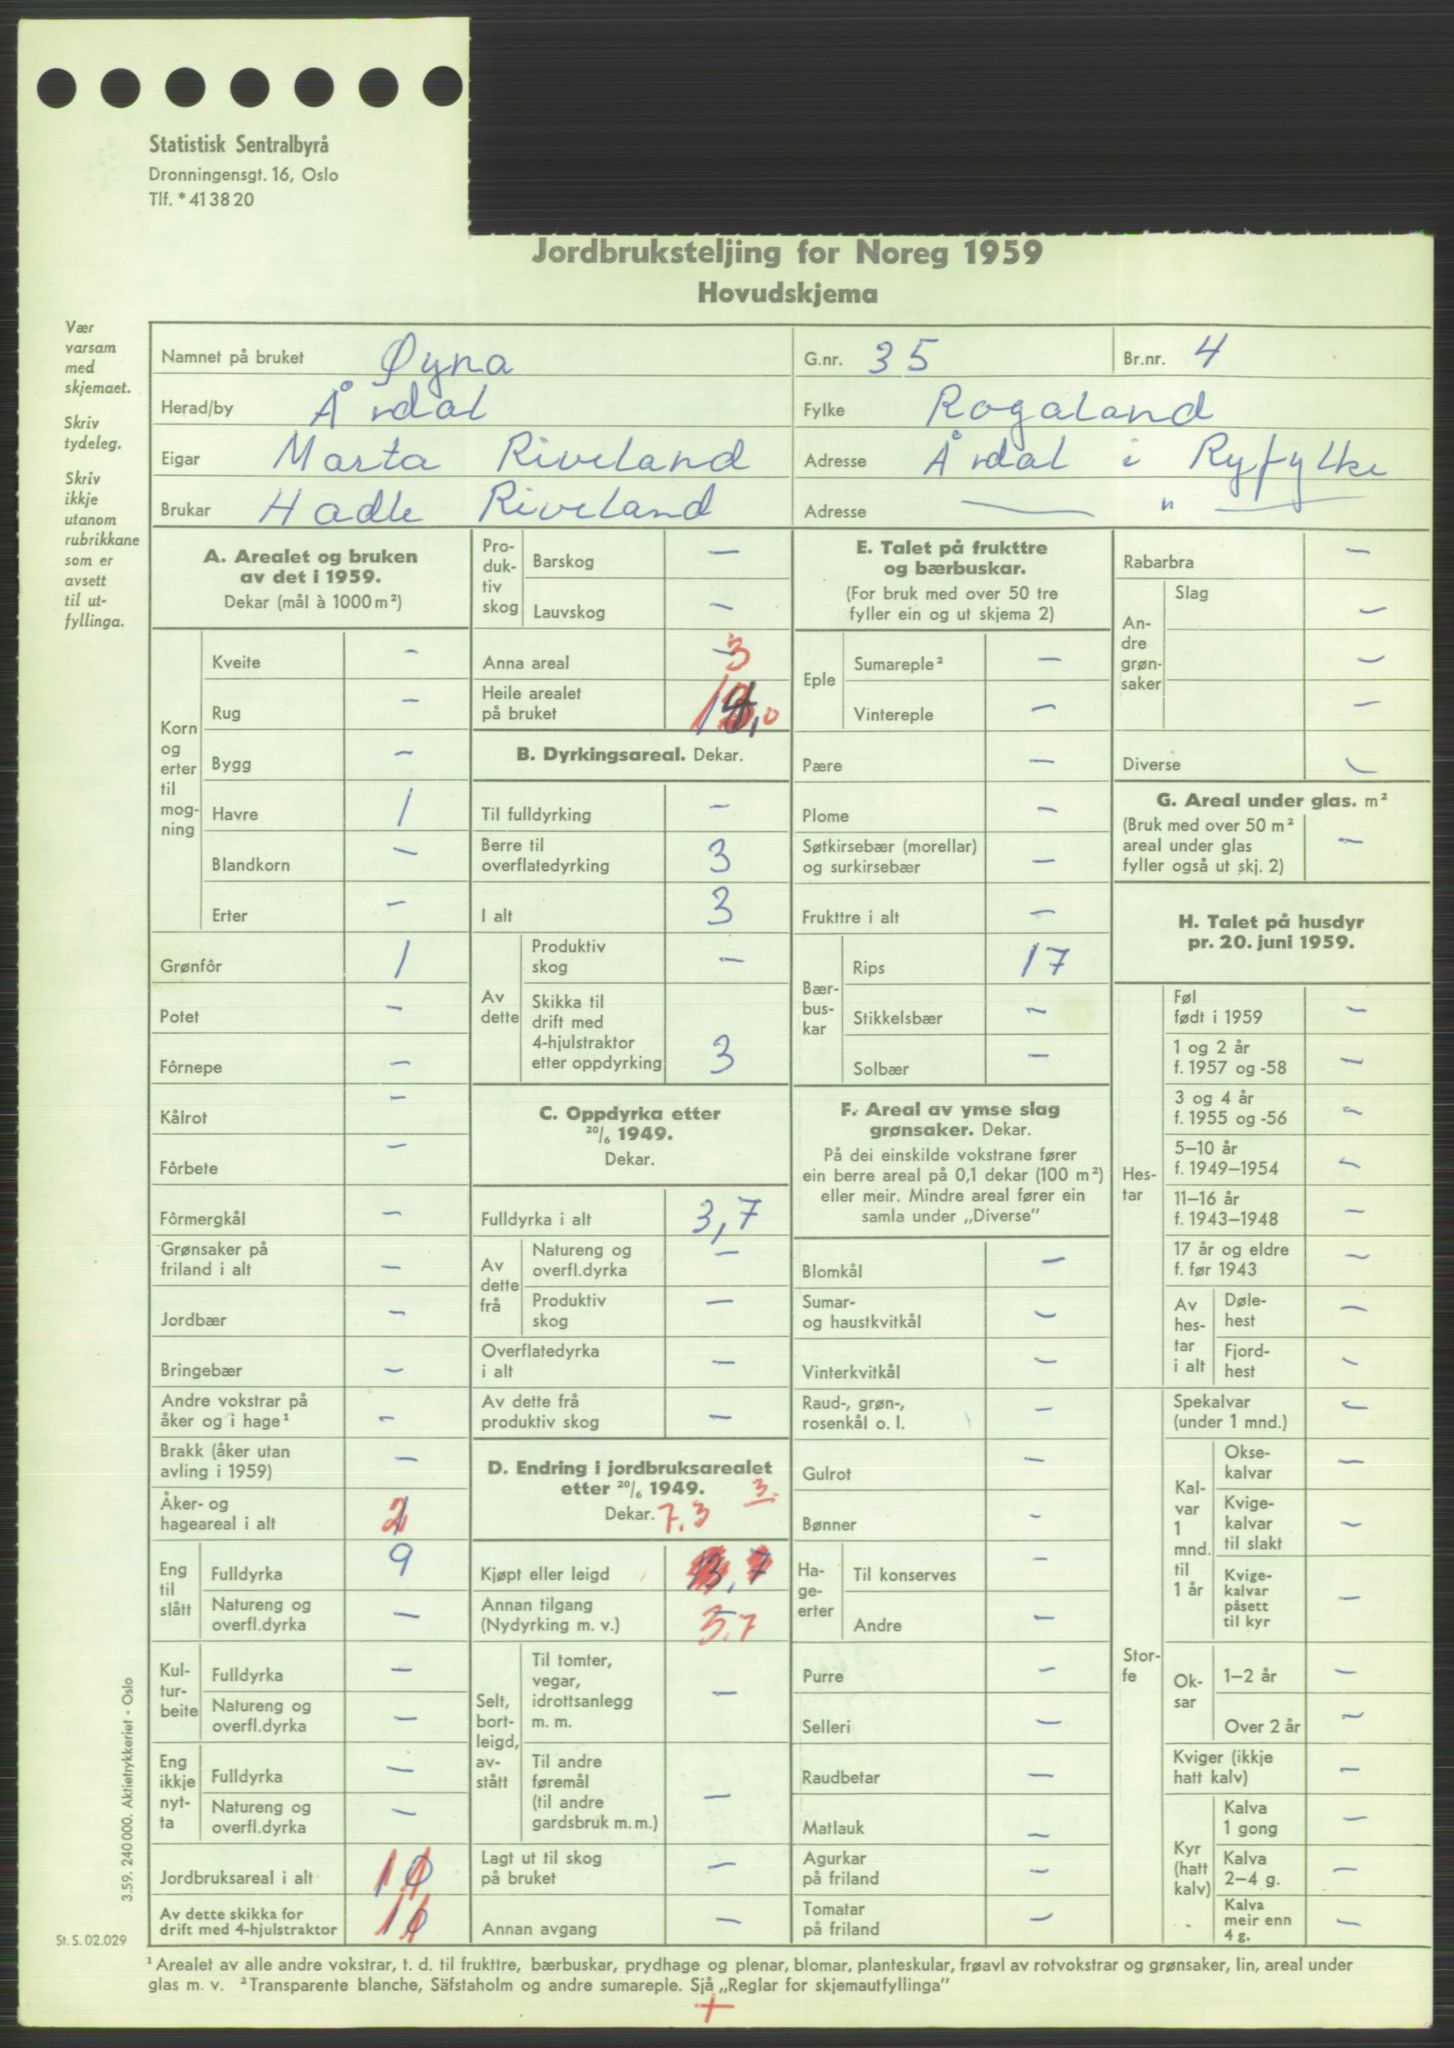 Statistisk Sentralbyrå
Dronningensgt. 16, Oslo
Tlf. * 41 38 20
Jordbruksteljing for Noreg 1959
Hovudskjema
Vær
varsam
med
skjemaet.
Skriv
tydeleg.
Skriv
ikkje
utanom
rubrikkane
som er
avsett
til ut-
fyllinga.
Namnet på bruket Øyna G.nr. 35 Br.nr. 4
Herad/by Årdal Fylke Rogaland
Eigar Marta Riveland Adresse Årdal i Ryfylke
Brukar Hadle Riveland Adresse — " —
A. Arealet og bruken
av det i 1959.
Dekar (mål à 1000 m²)
Korn
og
erter
til
mog-
ning
Kveite –
Rug –
Bygg –
Havre 1
Blandkorn –
Erter –
Grønfôr 1
Potet –
Fôrnepe –
Kålrot –
Fôrbete –
Fôrmergkål –
Grønsaker på
friland i alt –
Jordbær –
Bringebær –
Andre vokstrar på
åker og i hage¹ –
Brakk (åker utan
avling i 1959) –
Åker- og
hageareal i alt 2
Eng
til
slått
Fulldyrka 9
Natureng og
overfl.dyrka –
Kul-
tur-
beite
Fulldyrka –
Natureng og
overfl.dyrka –
Eng
ikkje
nyt-
ta
Fulldyrka –
Natureng og
overfl.dyrka –
Jordbruksareal i alt 11
Av dette skikka for
drift med 4-hjulstraktor 11
Pro-
duk-
tiv
skog
Barskog –
Lauvskog –
Anna areal 3
Heile arealet
på bruket 14,0
B. Dyrkingsareal. Dekar.
Til fulldyrking –
Berre til
overflatedyrking 3
I alt 3
Av
dette
Produktiv
skog –
Skikka til
drift med
4-hjulstraktor
etter oppdyrking 3
C. Oppdyrka etter
20/6 1949.
Dekar.
Fulldyrka i alt 3,7
Av
dette
frå
Natureng og
overfl.dyrka –
Produktiv
skog –
Overflatedyrka
i alt –
Av dette frå
produktiv skog –
D. Endring i jordbruksarealet
etter 20/6 1949. 3.
Dekar. 7,3
Kjøpt eller leigd
Annan tilgang
(Nydyrking m. v.) 3.7
Selt,
bort-
leigd,
av-
stått
Til tomter,
vegar,
idrottsanlegg
m. m. –
Til andre
føremål
(til andre
gardsbruk m. m.) –
Lagt ut til skog
på bruket –
Annan avgang –
E. Talet på frukttre
og bærbuskar.
(For bruk med over 50 tre
fyller ein og ut skjema 2)
Eple
Sumareple² –
Vintereple –
Pære –
Plome –
Søtkirsebær (morellar)
og surkirsebær –
Frukttre i alt –
Bær-
bus-
kar
Rips 17
Stikkelsbær –
Solbær –
F. Areal av ymse slag
grønsaker. Dekar.
På dei einskilde vokstrane fører
ein berre areal på 0,1 dekar (100 m²)
eller meir. Mindre areal fører ein
samla under „Diverse"
Blomkål –
Sumar-
og haustkvitkål –
Vinterkvitkål –
Raud-, grøn-,
rosenkål o. l. –
Gulrot –
Bønner –
Ha-
ge-
erter
Til konserves –
Andre –
Purre –
Selleri –
Raudbetar –
Matlauk –
Agurkar
på friland –
Tomatar
på friland –
Rabarbra –
An-
dre
grøn-
saker
Slag
–
–
–
Diverse –
G. Areal under glas. m²
(Bruk med over 50 m²
areal under glas
fyller også ut skj. 2) –
H. Talet på husdyr
pr. 20. juni 1959.
Hes-
tar
Føl
født i 1959 –
1 og 2 år
f. 1957 og -58 –
3 og 4 år
f. 1955 og -56 –
5–10 år
f. 1949–1954 –
11–16 år
f. 1943–1948 –
17 år og eldre
f. før 1943 –
Av
hes-
tar
i alt
Døle-
hest –
Fjord-
hest –
Stor-
fe
Spekalvar
(under 1 mnd.) –
Kal-
var
1
mnd.
til
1 år
Okse-
kalvar –
Kvige-
kalvar
til slakt –
Kvige-
kalvar
påsett
til kyr –
Ok-
sar
1–2 år –
Over 2 år –
Kviger (ikkje
hatt kalv) –
Kyr
(hatt
kalv)
Kalva
1 gong –
Kalva
2–4 g. –
Kalva
meir enn
4 g. –
3.59. 240 000. Aktietrykkeriet - Oslo
St. S. 02.029
¹ Arealet av alle andre vokstrar, t. d. til frukttre, bærbuskar, prydhage og plenar, blomar, planteskular, frøavl av rotvokstrar og grønsaker, lin, areal under
glas m. v. ² Transparente blanche, Säfstaholm og andre sumareple. Sjå „Reglar for skjemautfyllinga"
+